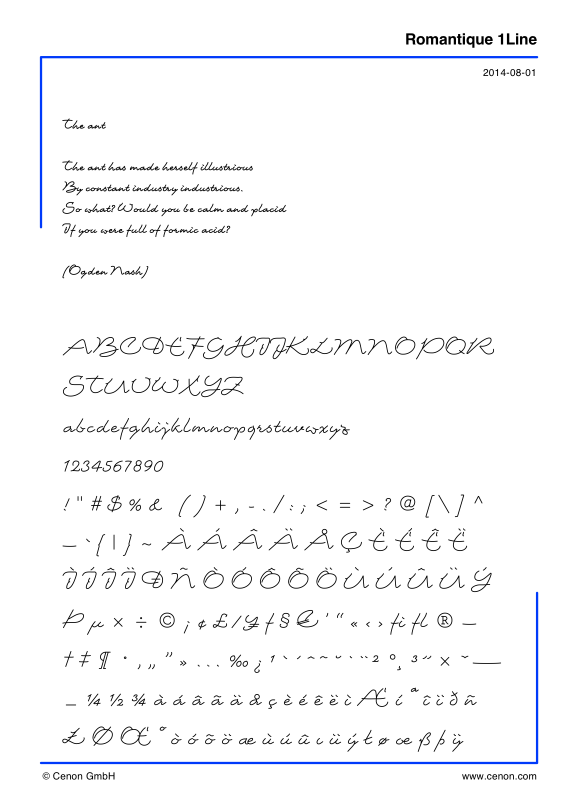 Romantique 1Line
2014-08-01
The ant
The ant has made herself illustrious
By constant industry industrious.
So what? Would you be calm and placid
If you were full of formic acid?
(Ogden Nash)
ABCDEFGHIJKLMNOPQR
STUVWXYZ
abcdefghijklmnopqrstuvwxyz
1234567890
! " # $ % & ( ) + , - . / : ; < = > ? @ [ \ ] ^
_ ` { | } ~ À Á Â Ä Å Ç È É Ê Ë
Ì Í Î Ï Ð Ñ Ò Ó Ô Õ Ö Ù Ú Û Ü Ý
Þ µ × ÷ © ¡ ¢ £ / ¥ ƒ § € ' “ « ‹ › fi fl ® –
† ‡ ¶ · ‚ „ ” » … ‰ ¿
— ¼ ½ ¾ à á â ã ä å ç è é ê ë ì Æ í ª î ï ð ñ
Ł Ø Œ º ò ó õ ö æ ù ú û ı ü ý ł ø œ ß þ ÿ
© Cenon GmbH
www.cenon.com